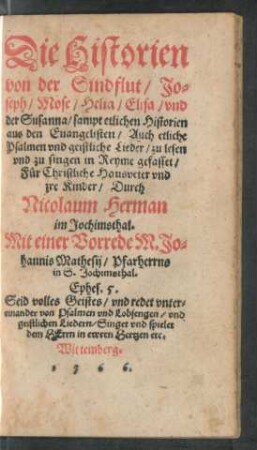 Die Historien
von der Sindflut / Jo-
seph / Mose / Helia / Elisa / vnd
der Susanna / sampt etlichen Historien
aus den Euangelisten / Auch etliche
Psalmen vnd geistliche Lieder / zu lesen
vnd zu singen in Reyme gefasset /
Für Christliche Hausveter vnd
jre Kinder / Durch
Nicolaum Herman
im Jochimsthal.
Mit einer Vorrede M. Jo-
hannis Mathesij / Pfarherrns
in S. Jochimsthal.
Ephes. 5.
Seid volles Geistes / vnd redet vnter-
einander von Psalmen vnd Lobsengen / vnd
geistlichen Liedern / Singet vnd spielet
dem HErrn in ewren Hertzen etc.
Wittemberg.
1566.